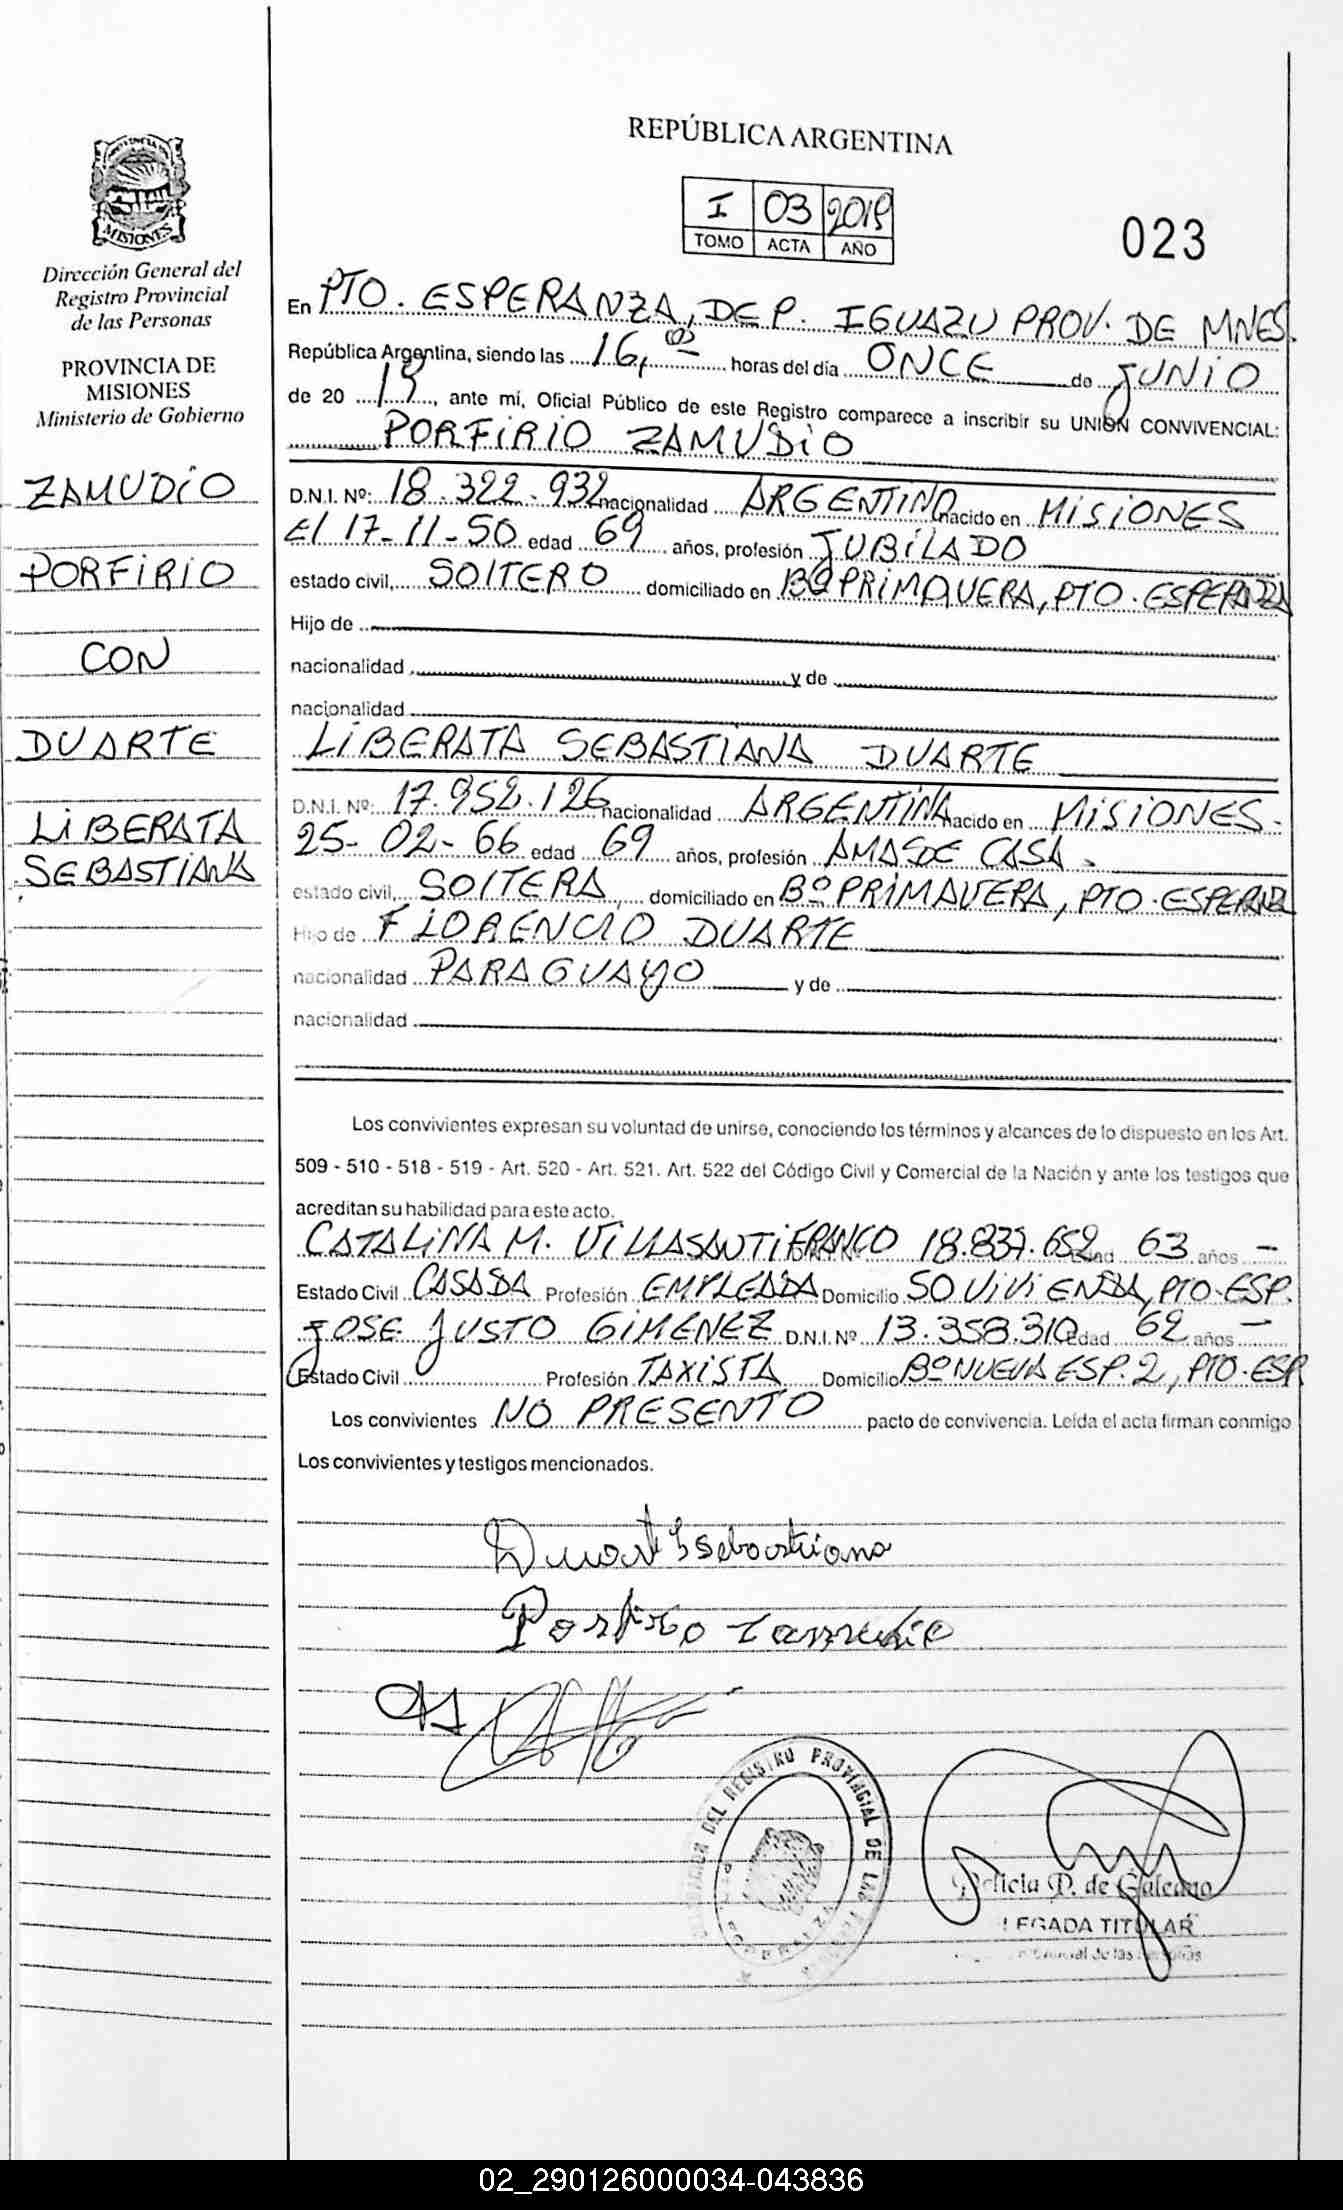 REPÚBLICA ARGENTINA
I 03 2019
TOMO ACTA AÑO
023
MISIONES
Dirección General del
Registro Provincial
de las Personas
PROVINCIA DE
MISIONES
Ministerio de Gobierno
ZAMUDIO
PORFIRIO
CON
DUARTE
LIBERATA
SEBASTIANA
En PTO. ESPERANZA, DEP. IGUAZU PROV. DE MNES.
República Argentina, siendo las 16,00 horas del día ONCE de JUNIO
de 20 19, ante mí, Oficial Público de este Registro comparece a inscribir su UNIÓN CONVIVENCIAL:
PORFIRIO ZAMUDIO
D.N.I. Nº: 18.322.932 nacionalidad ARGENTINO nacido en MISIONES
El 17-11-50 edad 69 años, profesión JUBILADO
estado civil, SOLTERO domiciliado en Bº PRIMAVERA, PTO. ESPERANZA
Hijo de
nacionalidad y de
nacionalidad
LIBERATA SEBASTIANA DUARTE
D.N.I. Nº: 17.952.126 nacionalidad ARGENTINA nacido en MISIONES.
25-02-66 edad 69 años, profesión AMA DE CASA.
estado civil, SOLTERA, domiciliado en Bº PRIMAVERA, PTO. ESPERANZA
Hijo de FLORENCIO DUARTE
nacionalidad PARAGUAYO y de
nacionalidad
Los convivientes expresan su voluntad de unirse, conociendo los términos y alcances de lo dispuesto en los Art.
509 - 510 - 518 - 519 - Art. 520 - Art. 521. Art. 522 del Código Civil y Comercial de la Nación y ante los testigos que
acreditan su habilidad para este acto.
CATALINA M. VILLASANTI FRANCO 18.837.652 Edad 63 años
Estado Civil CASADA Profesión EMPLEADA Domicilio 50 VIVIENDA, PTO. ESP.
JOSE JUSTO GIMENEZ D.N.I. Nº 13.358.310 Edad 62 años
Estado Civil Profesión TAXISTA Domicilio Bº NUEVA ESP. 2, PTO. ESP
Los convivientes NO PRESENTO pacto de convivencia. Leída el acta firman conmigo
Los convivientes y testigos mencionados.
Duarte Sebastiana
Porfirio Zamudio
DEL REGISTRO PROVINCIAL DE LAS
D. de Galeano
LEGADA TITULAR
de las
02_290126000034-043836